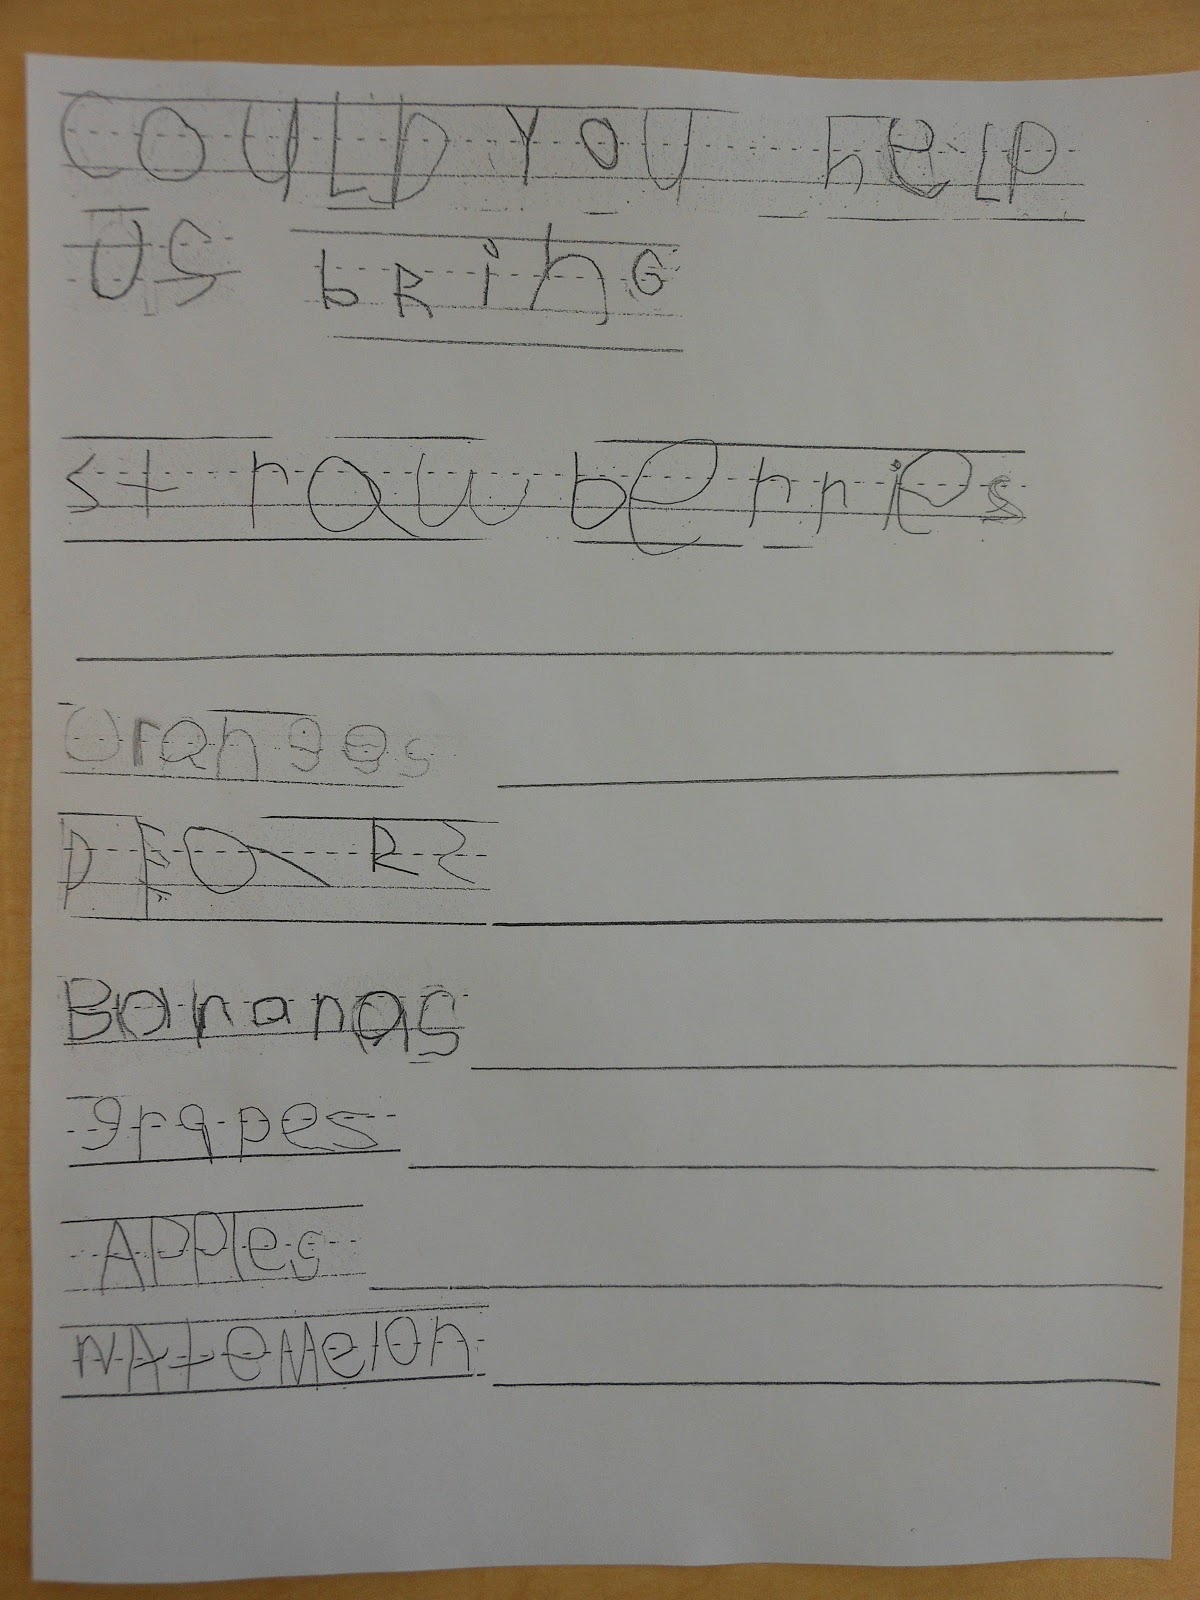 COULD YOU help
US bRinG
strawberries
Oranges
PEaRS
Bananas
grapes
APPles
WAteMelon